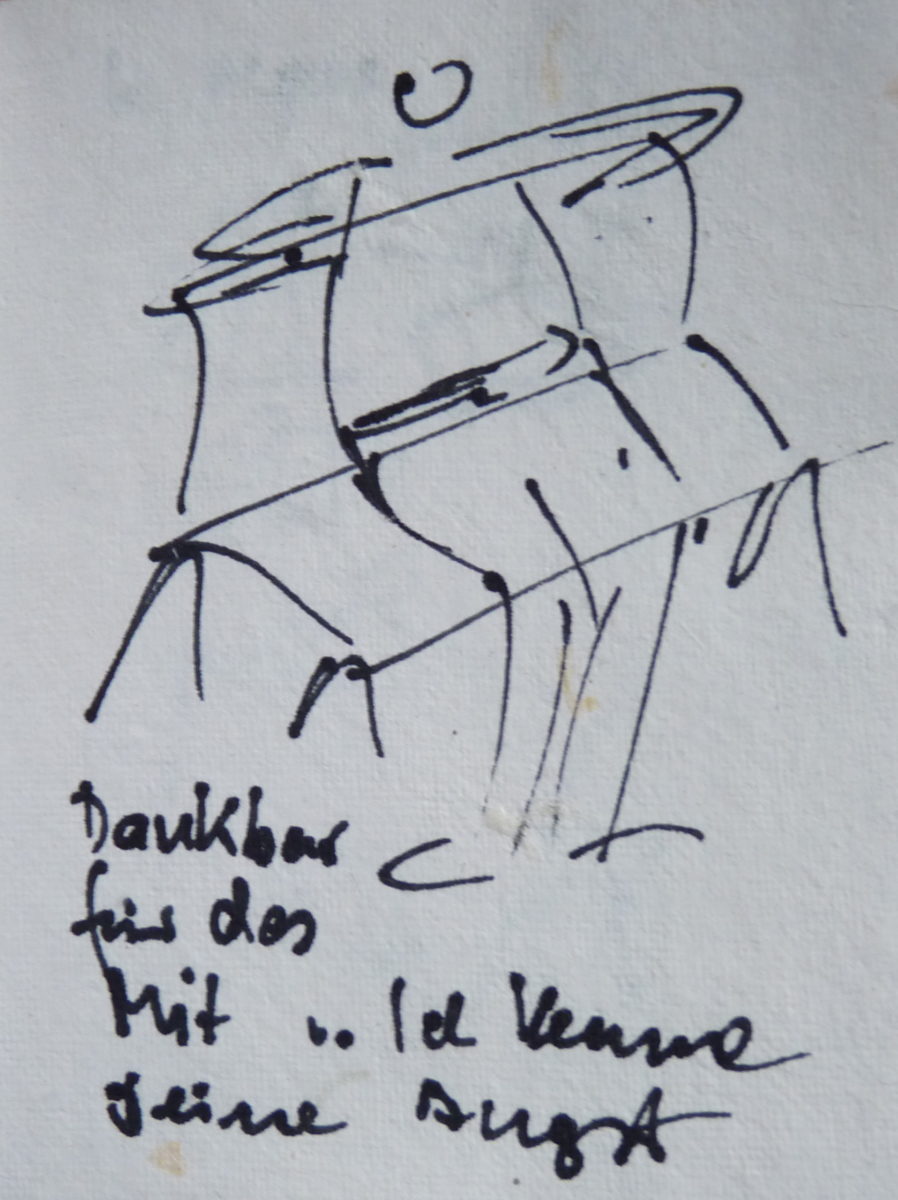 Dankbar
für das
Mit .. Ich kenne
deine Angst